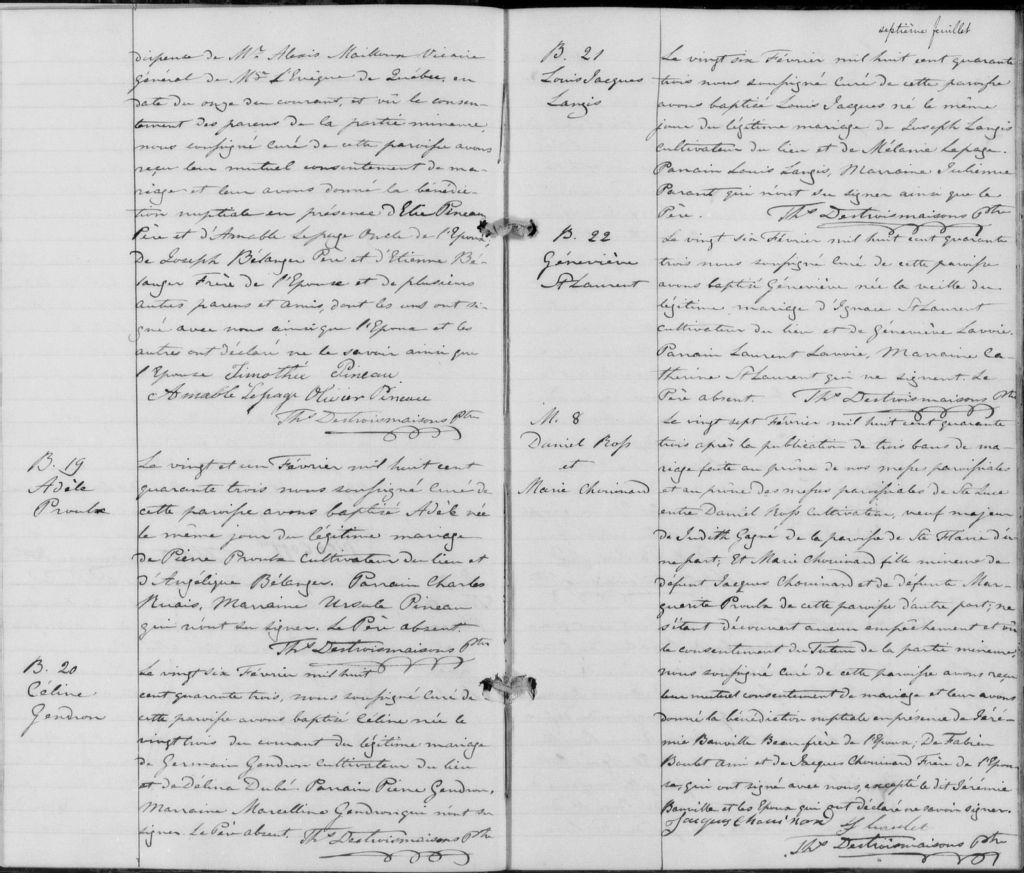 dispense de Mr. Alexis Mailloux Vicaire
général de Mgr. l'Evêque de Québec, en
date du onze du courant, et vû le consen-
tement des parens de la partie mineure,
nous soussigné Curé de cette paroisse avons
reçu leur mutuel consentement de ma-
riage et leur avons donné la bénédic-
tion nuptiale en présence d'Elie Pineau
Père et d'Amable Lepage Oncle de l'Epoux,
de Joseph Bélanger Père et d'Etienne Bé-
langer Frère de l'Epouse et de plusieurs
autres parens et amis, dont les uns ont si-
gné avec nous ainsi que l'Epoux et les
autres ont déclaré ne le savoir ainsi que
l'Epouse Timothé Pineau
Amable Lepage Olivier Pineau
Ths. Destroismaisons Ptre
B. 19
Adèle
Proulx
Le vingt et un Février mil huit cent
quarante trois nous soussigné Curé de
cette paroisse avons baptisé Adèle née
le même jour du légitime mariage
de Pierre Proulx Cultivateur du lieu et
d'Angélique Bélanger. Parrain Charles
Ruais, Marraine Ursule Pineau
qui n'ont su signer. Le Père absent.
Ths. Destroismaisons Ptre
B. 20
Céline
Gendron
Le vingt six Février mil huit
cent quarante trois, nous soussigné Curé de
cette paroisse avons baptisé Céline née le
vingt trois du courant du légitime mariage
de Germain Gendron Cultivateur du lieu
et de Délina Dubé. Parrain Pierre Gendron,
Marraine Marcelline Gendron qui n'ont su
signer. Le Père absent. Ths. Destroismaisons Ptre
septième feuillet
B. 21
Louis Jacques
Langis
Le vingt six Février mil huit cent quarante
trois nous soussigné Curé de cette paroisse
avons baptisé Louis Jacques né le même
jour du légitime mariage de Joseph Langis
Cultivateur du lieu et de Mélanie Lepage.
Parrain Louis Langis, Marraine Julienne
Parant qui n'ont su signer ainsi que le
Père. Ths. Destroismaisons Ptre
B. 22
Géneviève
St Laurent
Le vingt six Février mil huit cent quarante
trois nous soussigné Curé de cette paroisse
avons baptisé Géneviève née la veille du
légitime mariage d'Ignace St Laurent
Cultivateur du lieu et de Géneviève Lavoie.
Parrain Laurent Lavoie, Marraine Ca-
therine St Laurent qui ne signent. Le
Père absent. Ths. Destroismaisons Ptre
M. 8
Daniel Ross
et
Marie Chouinard
Le vingt sept Février mil huit cent quarante
trois après la publication de trois bans de ma-
riage faite au prône de nos messes paroissiales
et au prône des messes paroissiales de Ste Luce
entre Daniel Ross Cultivateur, veuf majeur
de Judith Gagné de la paroisse de Ste Flavie d'u-
ne part; Et Marie Chouinard fille mineure de
défunt Jacques Chouinard et de défunte Mar-
guerite Proulx de cette paroisse d'autre part; ne
s'étant découvert aucun empêchement et vû
le consentement du Tuteur de la partie mineure,
nous soussigné Curé de cette paroisse avons reçu
leur mutuel consentement de mariage et leur avons
donné la bénédiction nuptiale en présence de Jéré-
mie Banville Beaufrère de l'Epoux; De Fabien
Boulet Ami et de Jacques Chouinard Frère de l'Epou-
se, qui ont signé avec nous, excepté le dit Jérémie
Banville et les Epoux qui ont déclaré ne savoir signer.
Jacques Chouinard
Ths. Destroismaisons Ptre